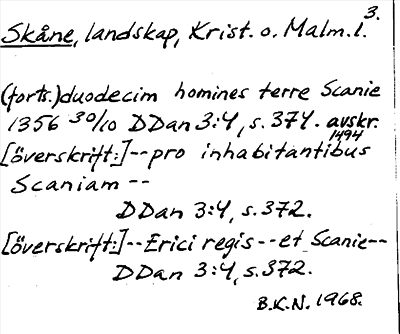 3.
Skåne, landskap, Krist. o. Malm. l.
(forts.) duodecim homines terre Scanie
1356 30/10 DDan 3:4, s. 374. avskr.
1494
[överskrift:] -- pro inhabitantibus
Scaniam --
DDan 3:4, s. 372.
[överskrift:] -- Erici regis -- et Scanie --
DDan 3:4, s. 372.
B.K.N. 1968.